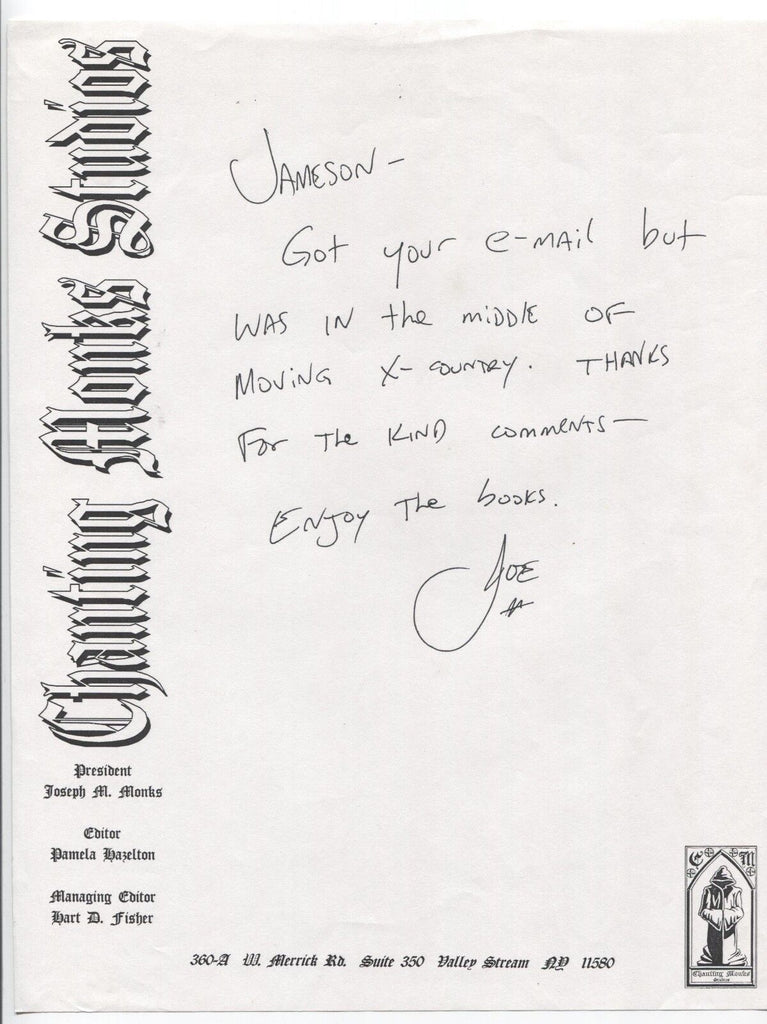 Chanting Monks Studios
JAMESON-
Got your e-mail but
WAS IN the middle OF
MOVING X-COUNTRY. THANKS
For The KIND comments—
ENJOY The books.
JOE
President
Joseph M. Monks
Editor
Pamela Hazelton
Managing Editor
Hart D. Fisher
360-A W. Merrick Rd. Suite 350 Valley Stream NY 11580
C M
Chanting Monks
Studios